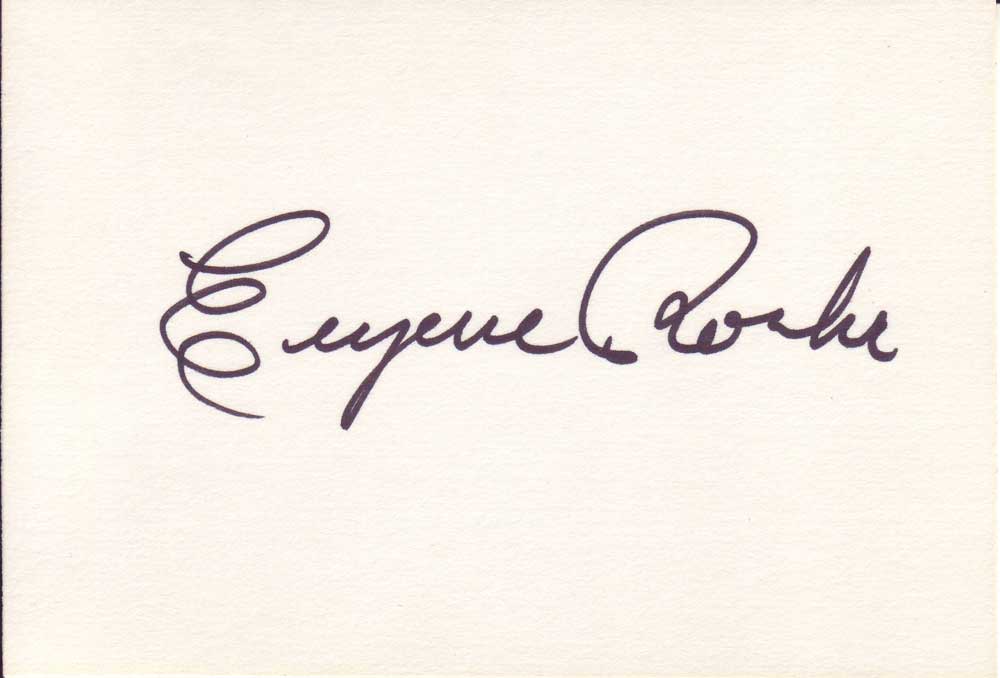 Eugene Roche